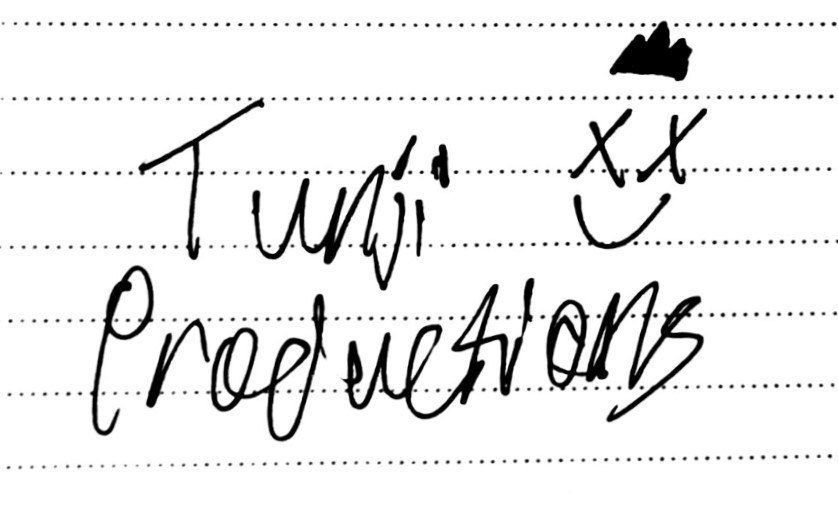 Tunji
Productions